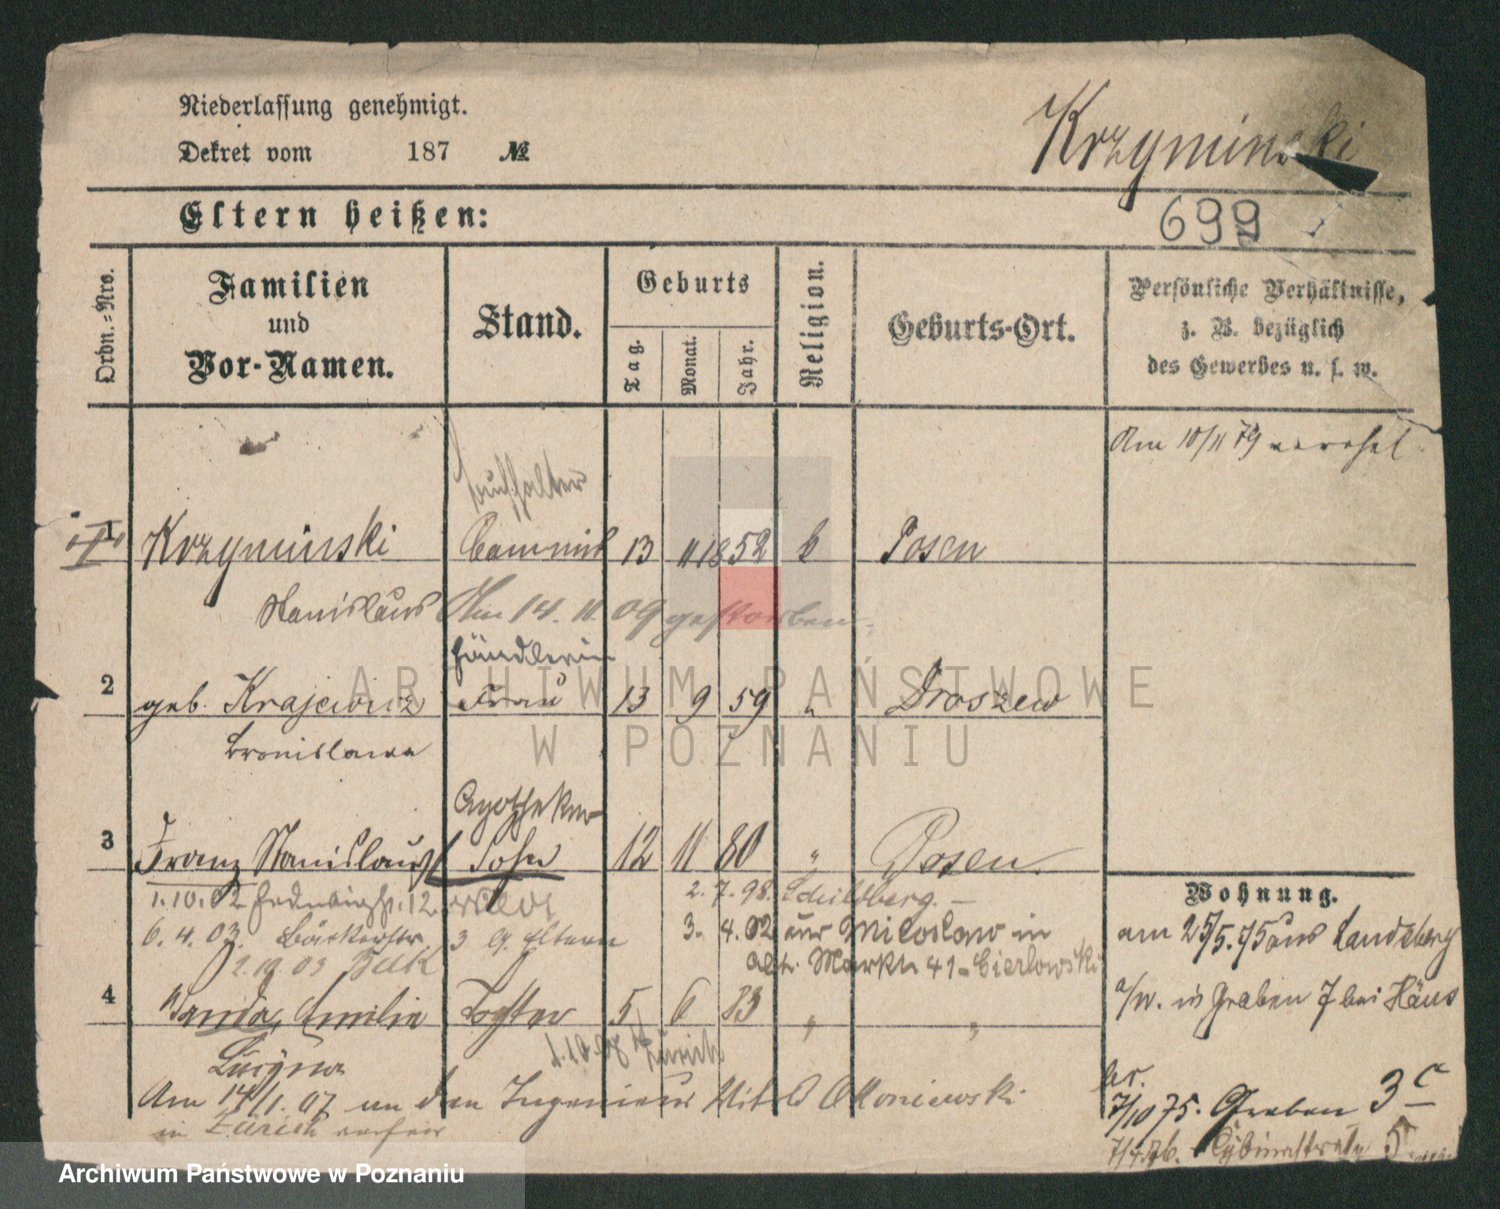 Niederlassung genehmigt.
Dekret vom 187 №
Krzyminski
Eltern heißen:
699
Ordn.-Nrs.
Familien
und
Vor-Namen.
Stand.
Geburts
Tag.
Monat.
Jahr.
Religion.
Geburts-Ort.
Persönliche Verhältnisse,
z. B. bezüglich
des Gewerbes u. s. w.
Am 10/11 79 verehel.
Buchhalter
1 Krzyminski Commis 13 11 1852 k Posen
Stanislaus Am 14. 11. 09 gestorben
Händlerin
2 geb. Krajewicz Frau 13 9 59 " Droszew
Bronislawa
Apotheker
3 Franz Stanislaus Sohn 12 11 80 " Posen
1.10.02 12 2.7.98. Schildberg.
6.4.03. Bäckerstr. 3 b. Eltern 3. 4.02 aus Miloslaw in
2.10 03 Buk Alt. Markt 41 Cierlowski
4 Wanda, Emilie Tochter 5 6 83 " "
Lucyna 1.10.08 Zürich
Am 14/1. 07 an den Ingenieur Witold Okoniewski
in Zürich
Wohnung.
am 25/5.75 aus Landsberg
a/W. in Graben 7 bei
7/10 75. Graben 3c
ARCHIWUM PAŃSTWOWE
W POZNANIU
Archiwum Państwowe w Poznaniu